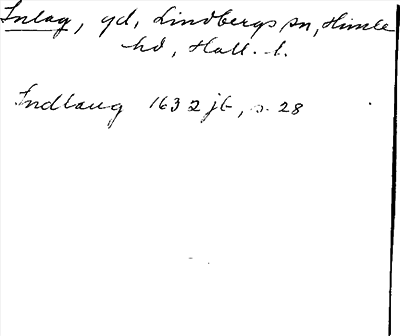 Inlag, gd, Lindbergs sn, Himle
hd, Hall. l.
Indlaug 1632 jb, s. 28